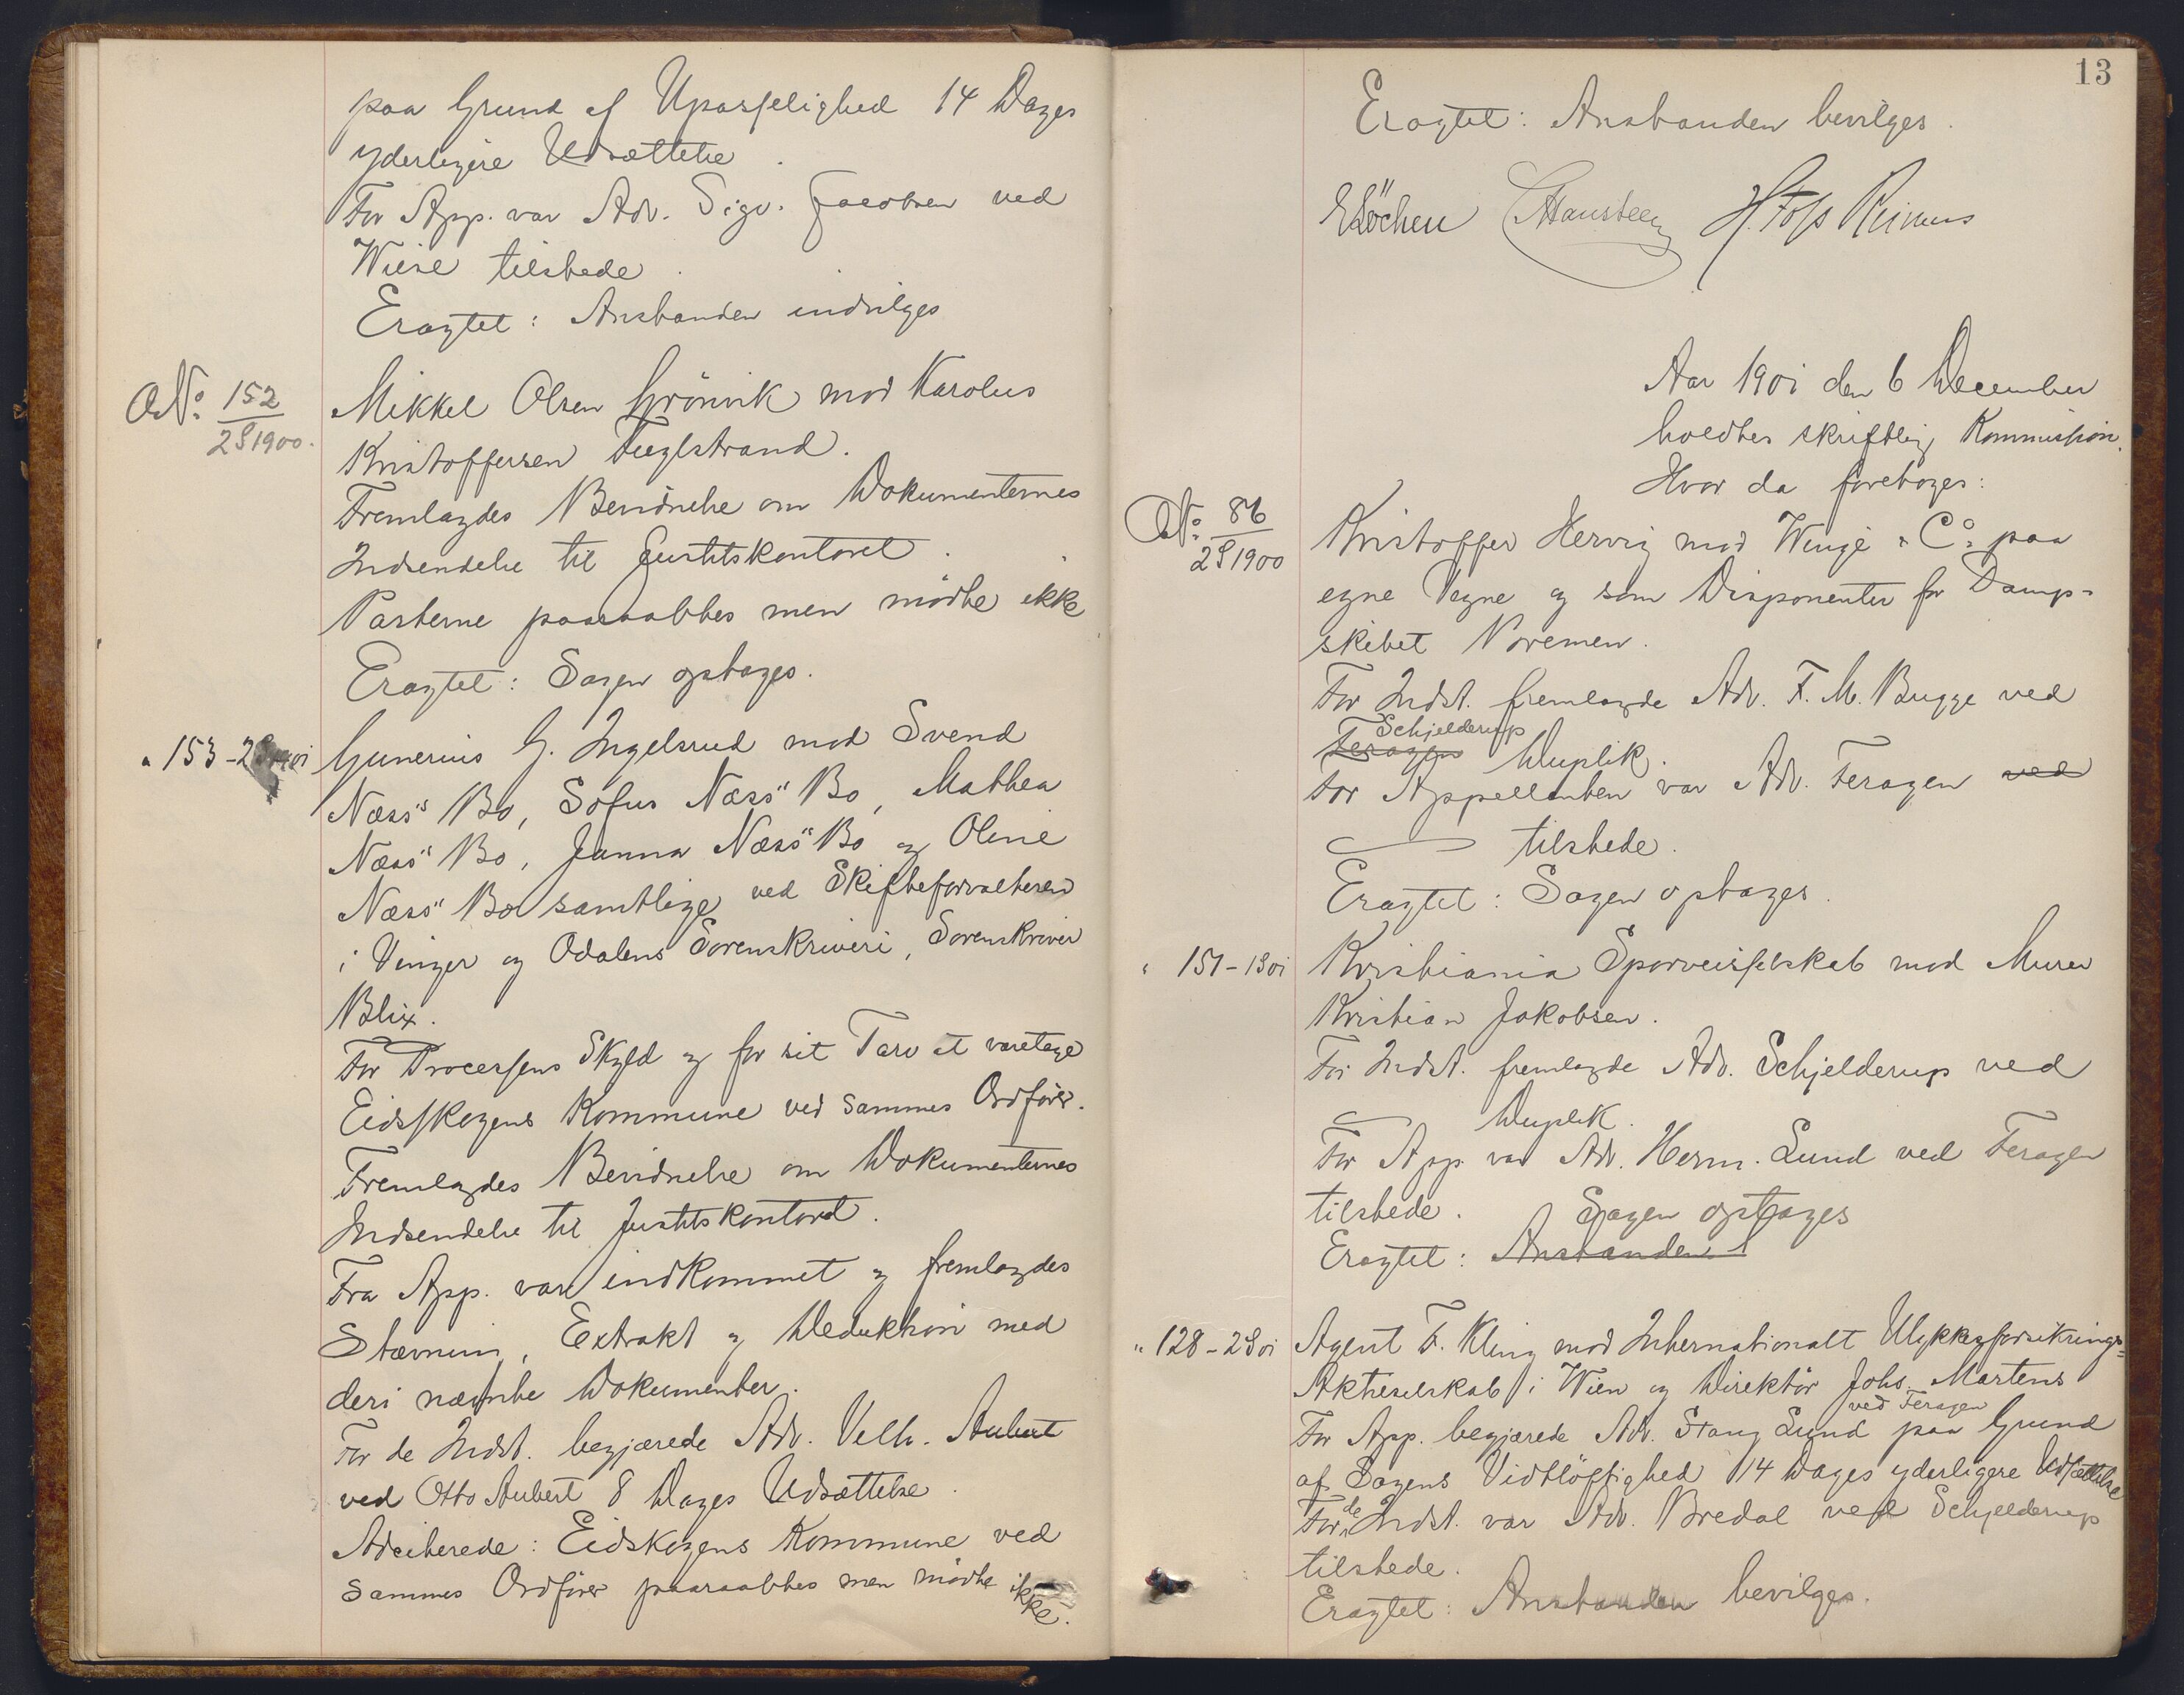 paa Grund af Upasselighed 14 Dages
yderligere Udsættelse.
For App. var Adv. Sigv. Jacobsen ved
Wiese tilstede.
Eragtet: Anstanden indvilges
A No. 152/2S1900.
Mikkel Olsen Grönvik mod Karolus
Kristoffersen Fuglstrand.
Fremlagdes Bevidnelse om Dokumenternes
Indsendelse til Justitskontoret.
Parterne paaraabtes men mödte ikke
Eragtet: Sagen optages.
" 153-2S1901
Gunerius G. Ingelsrud mod Svend
Næss" Bo, Sofus Næss" Bo, Mathea
Næss" Bo, Janna Næss" Bo og Oline
Næss" Bo samtlige ved Skifteforvalteren
i Vinger og Odalens Sorenskriveri, Sorenskriver
Blix.
For Processens Skyld og for sit Tarv at varetage
Eidsskogens Kommune ved sammes Ordförer.
Fremlagdes Bevidnelse om Dokumenternes
Indsendelse til Justitskontoret.
Fra App. var indkommet og fremlagdes
Stævning, Extrakt og Deduktion med
deri nævnte Dokumenter.
For de Indst. begjærede Adv. Vilh. Aubert
ved Otto Aubert 8 Dages Udsættelse.
Adciterede: Eidskogens Kommune ved
sammes Ordförer paaraabtes men mödte ikke.
13
Eragtet: Anstanden bevilges.
ELöchen Hansteen H. Foss Reimers
Aar 1901 den 6 December
holdtes skriftlig Kommission.
Hvor da foretoges:
A No. 86/2S1900
Kristoffer Hervig mod Winge & Co. paa
egne Vegne og som Disponenter for Damp-
skibet Noremen.
For Indst. fremlagde Adv. F. M. Bugge ved
Schjelderup
Feragen Duplik.
For Appellanten var Adv. Feragen ved
tilstede.
Eragtet: Sagen optages.
" 151-1S01
Kristiania Sporveisselskab mod Murer
Kristian Jakobsen.
For Indst. fremlagde Adv. Schjelderup ved
Duplik.
For App. var Adv. Herm. Lund ved Feragen
tilstede. Sagen optages
Eragtet: Anstanden
" 128-2S01
Agent F. Kling mod Internationalt Ulykkesforsikrings-
Aktieselskab i Wien og Direktör Johs. Martens
ved Feragen
For App. begjærede Adv. Stang Lund paa Grund
af Sagens Vidtlöftighed 14 Dages yderligere Udsættelse
For de Indst. var Adv. Bredal ved Schjelderup
tilstede.
Eragtet: Anstanden bevilges.